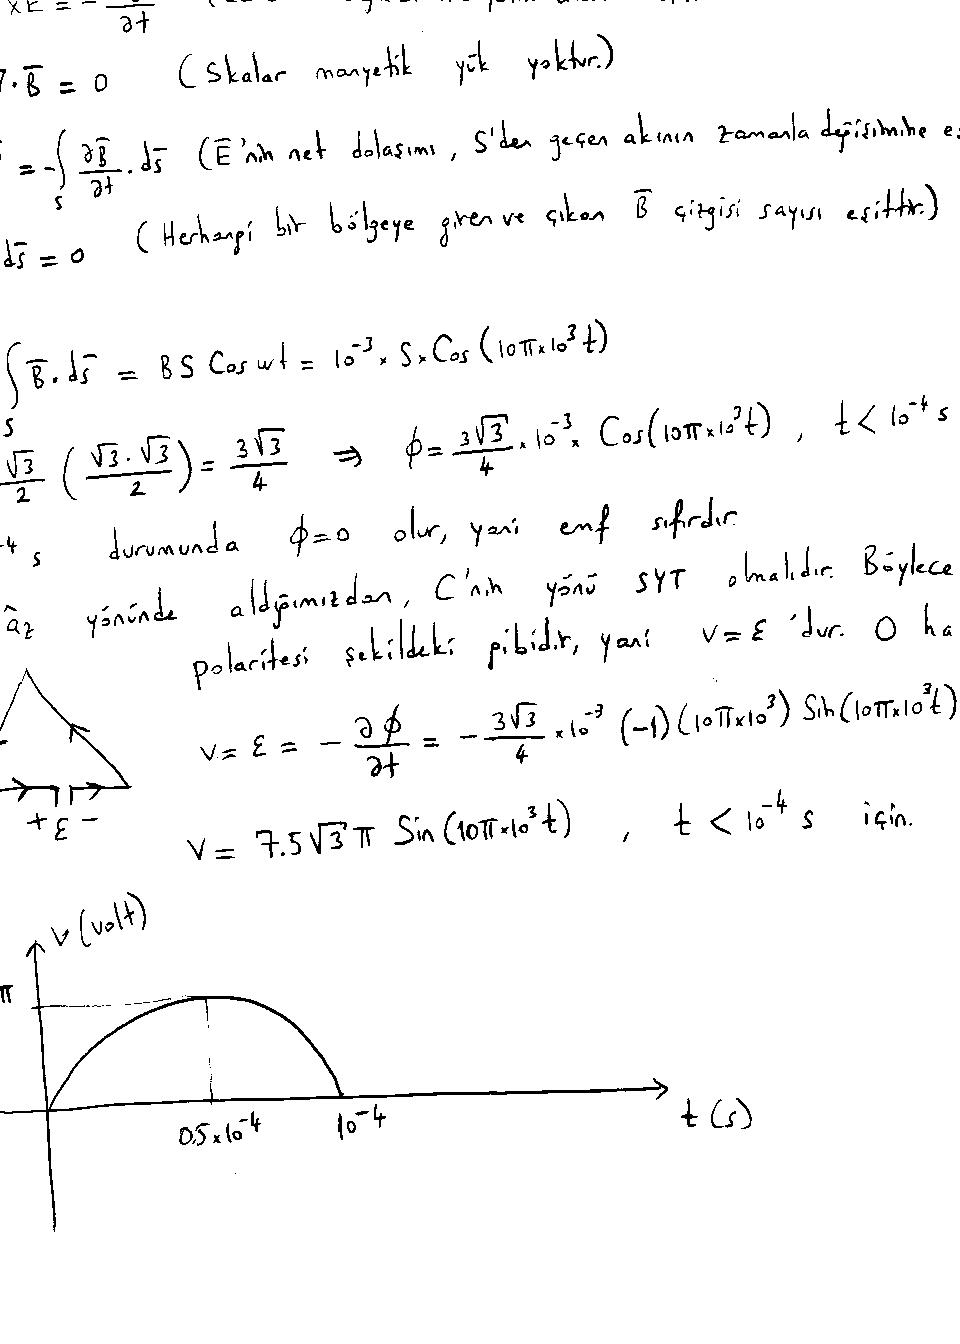 xE = - ∂t
∇·B̄ = 0 (Skalar manyetik yük yoktur.)
= -∫s ∂B̄/∂t · ds̄ (Ē'nin net dolaşımı, S'den geçen akının zamanla değişimine e
ds̄ = 0 (Herhangi bir bölgeye giren ve çıkan B̄ çizgisi sayısı eşittir.)
∫s B̄·ds̄ = BS Cos wt = 10⁻³ x S x Cos (10π×10³t)
√3/2 (√3·√3/2) = 3√3/4 ⇒ ϕ = 3√3/4 × 10⁻³ × Cos(10π×10³t), t < 10⁻⁴ s
⁻⁴ s durumunda ϕ=0 olur, yani emf sıfırdır.
âz yönünde aldığımızdan, C'nin yönü SYT olmalıdır. Böylece
polaritesi şekildeki gibidir, yani v=ε 'dur. O ha
v = ε = - ∂ϕ/∂t = - 3√3/4 × 10⁻³ (-1)(10π×10³) Sin(10π×10³t)
+ ε -
v = 7.5√3 π Sin(10π×10³t), t < 10⁻⁴ s için.
v (volt)
π
0.5×10⁻⁴ 10⁻⁴ t (s)